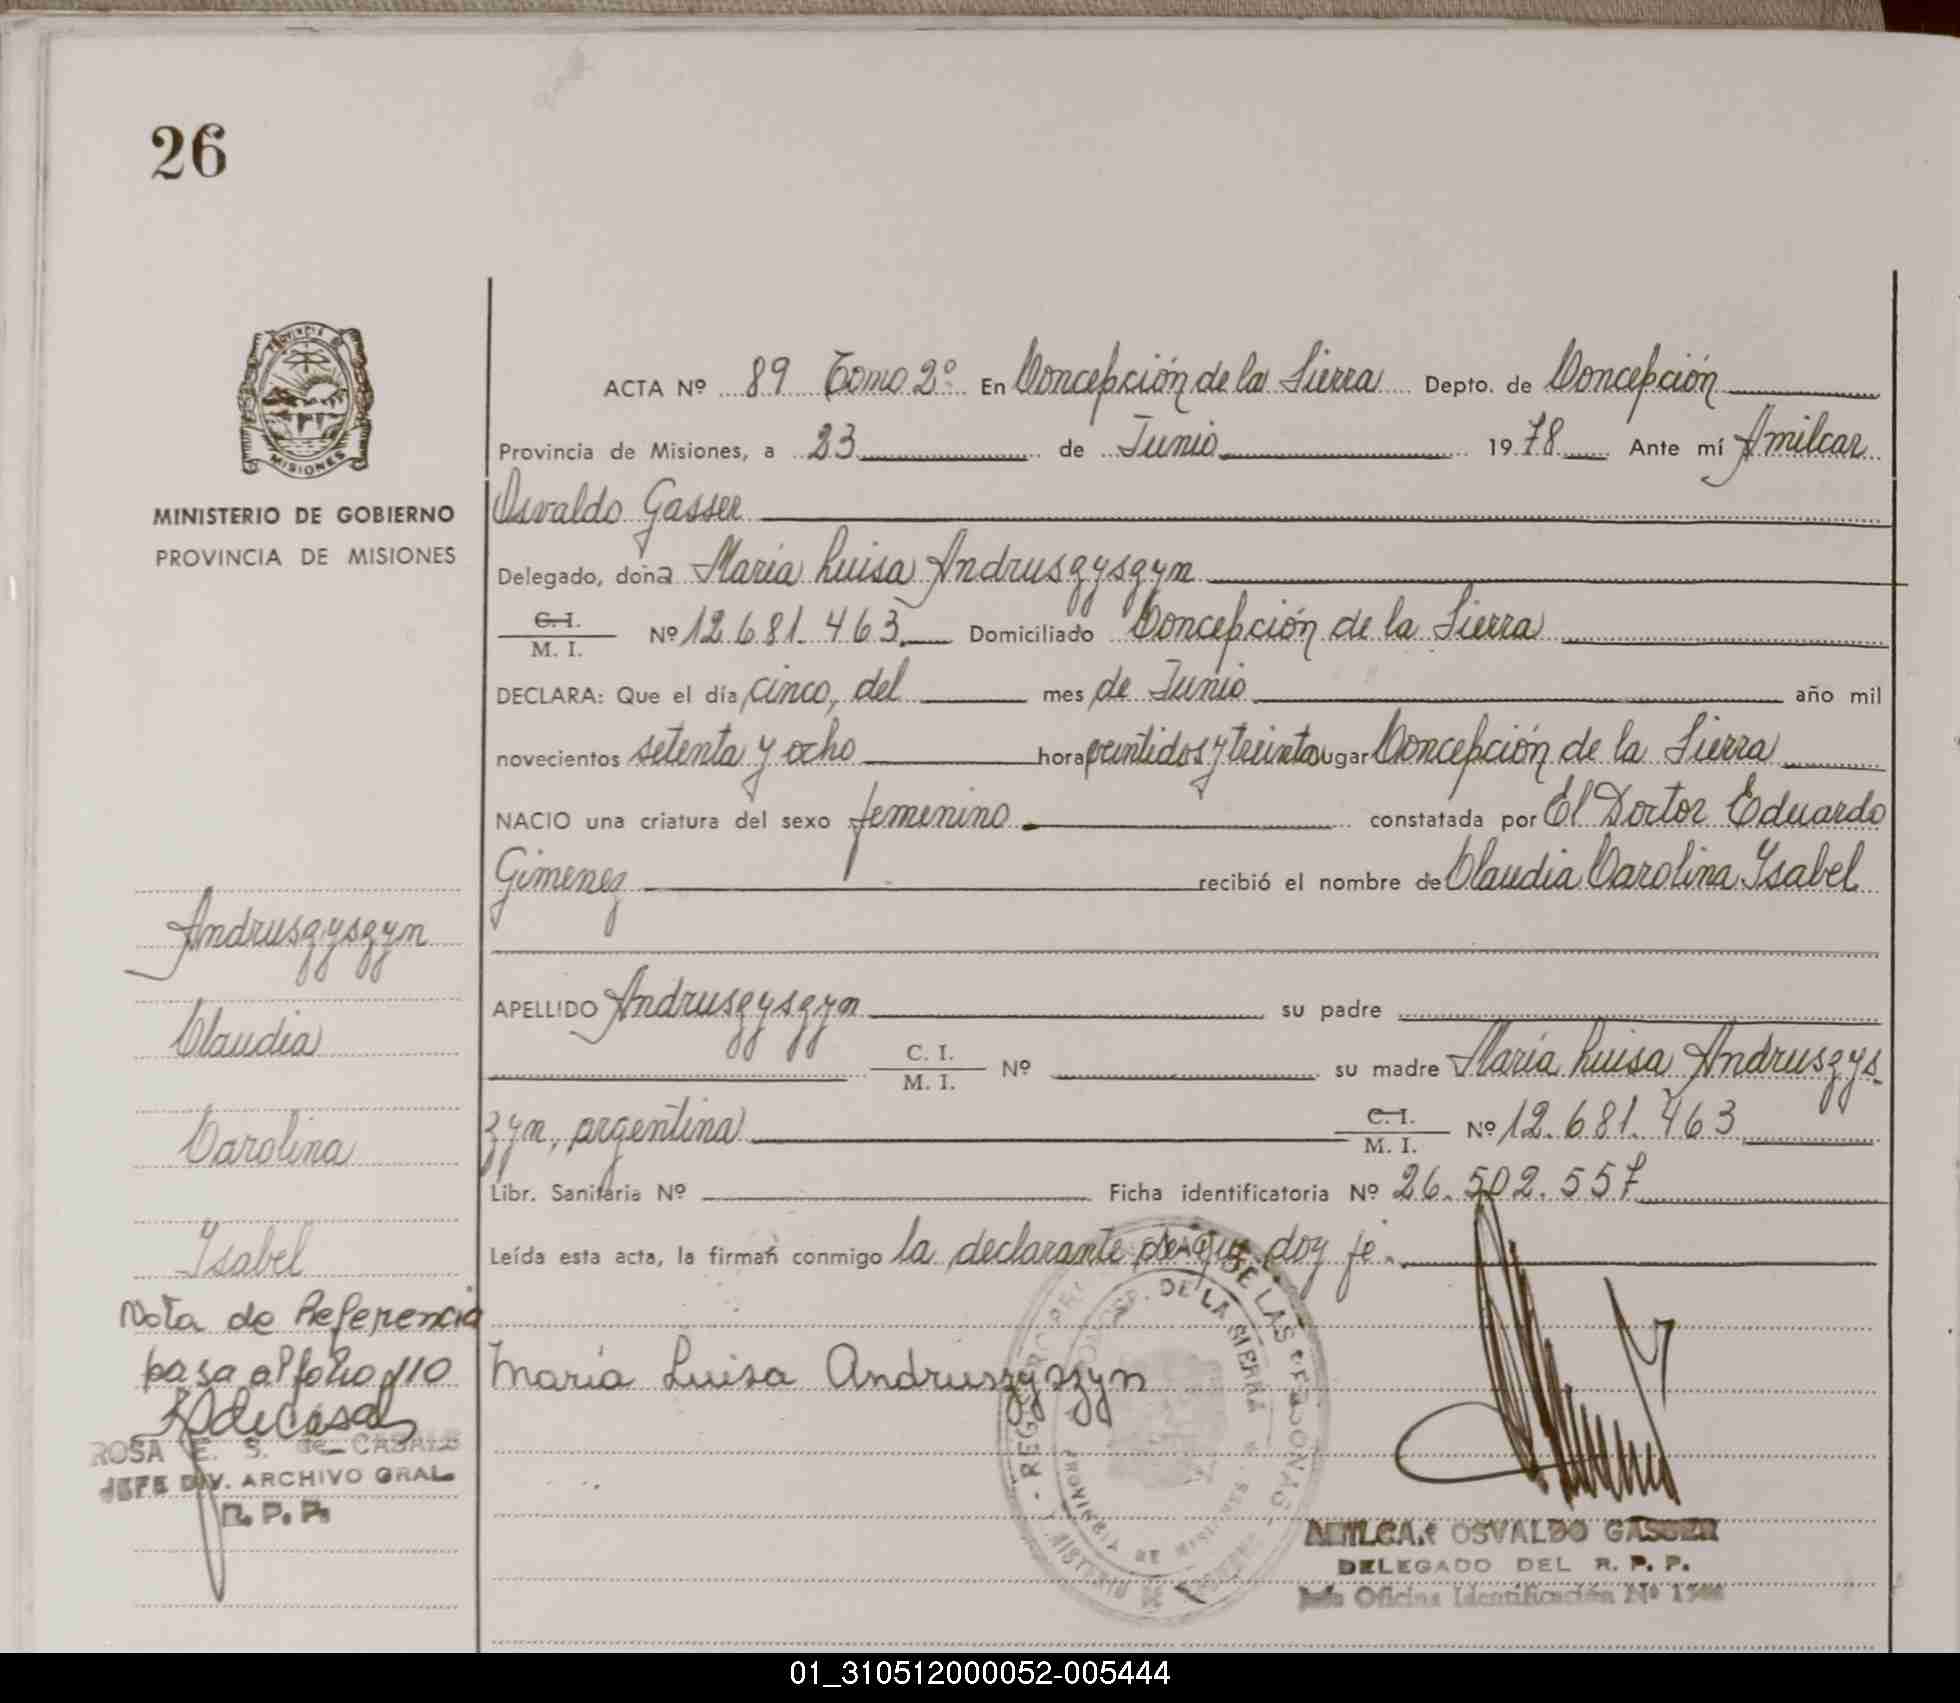 26
PROVINCIA DE
MISIONES
MINISTERIO DE GOBIERNO
PROVINCIA DE MISIONES
ACTA Nº 89 Tomo 2º En Concepción de la Sierra Depto. de Concepción
Provincia de Misiones, a 23 de Junio 1978 Ante mí Amilcar
Osvaldo Gasser
Delegado, doña María Luisa Andruszyszyn
C. I.
M. I. Nº 12.681.463 Domiciliado Concepción de la Sierra
DECLARA: Que el día cinco, del mes de Junio año mil
novecientos setenta y ocho hora veintidos y treinta lugar Concepción de la Sierra
NACIO una criatura del sexo femenino constatada por El Doctor Eduardo
Gimenez recibió el nombre de Claudia Carolina Ysabel
APELLIDO Andruszyszyn su padre
C. I.
M. I. Nº su madre María Luisa Andruszys
zyn, argentina C. I.
M. I. Nº 12.681.463
Libr. Sanitaria Nº Ficha identificatoria Nº 26.502.557
Leída esta acta, la firman conmigo la declarante de que doy fe.
María Luisa Andruszyszyn
Andruszyszyn
Claudia
Carolina
Ysabel
Nota de Referencia
pasa al folio 110
ROSA E. S. de CASALS
JEFE DIV. ARCHIVO GRAL
R. P. P.
DE LA SIERRA
DE LAS PERSONAS
PROVINCIA DE MISIONES
AMILCAR OSVALDO GASSER
DELEGADO DEL R. P. P.
Jefe Oficina Identificación Nº
01_310512000052-005444